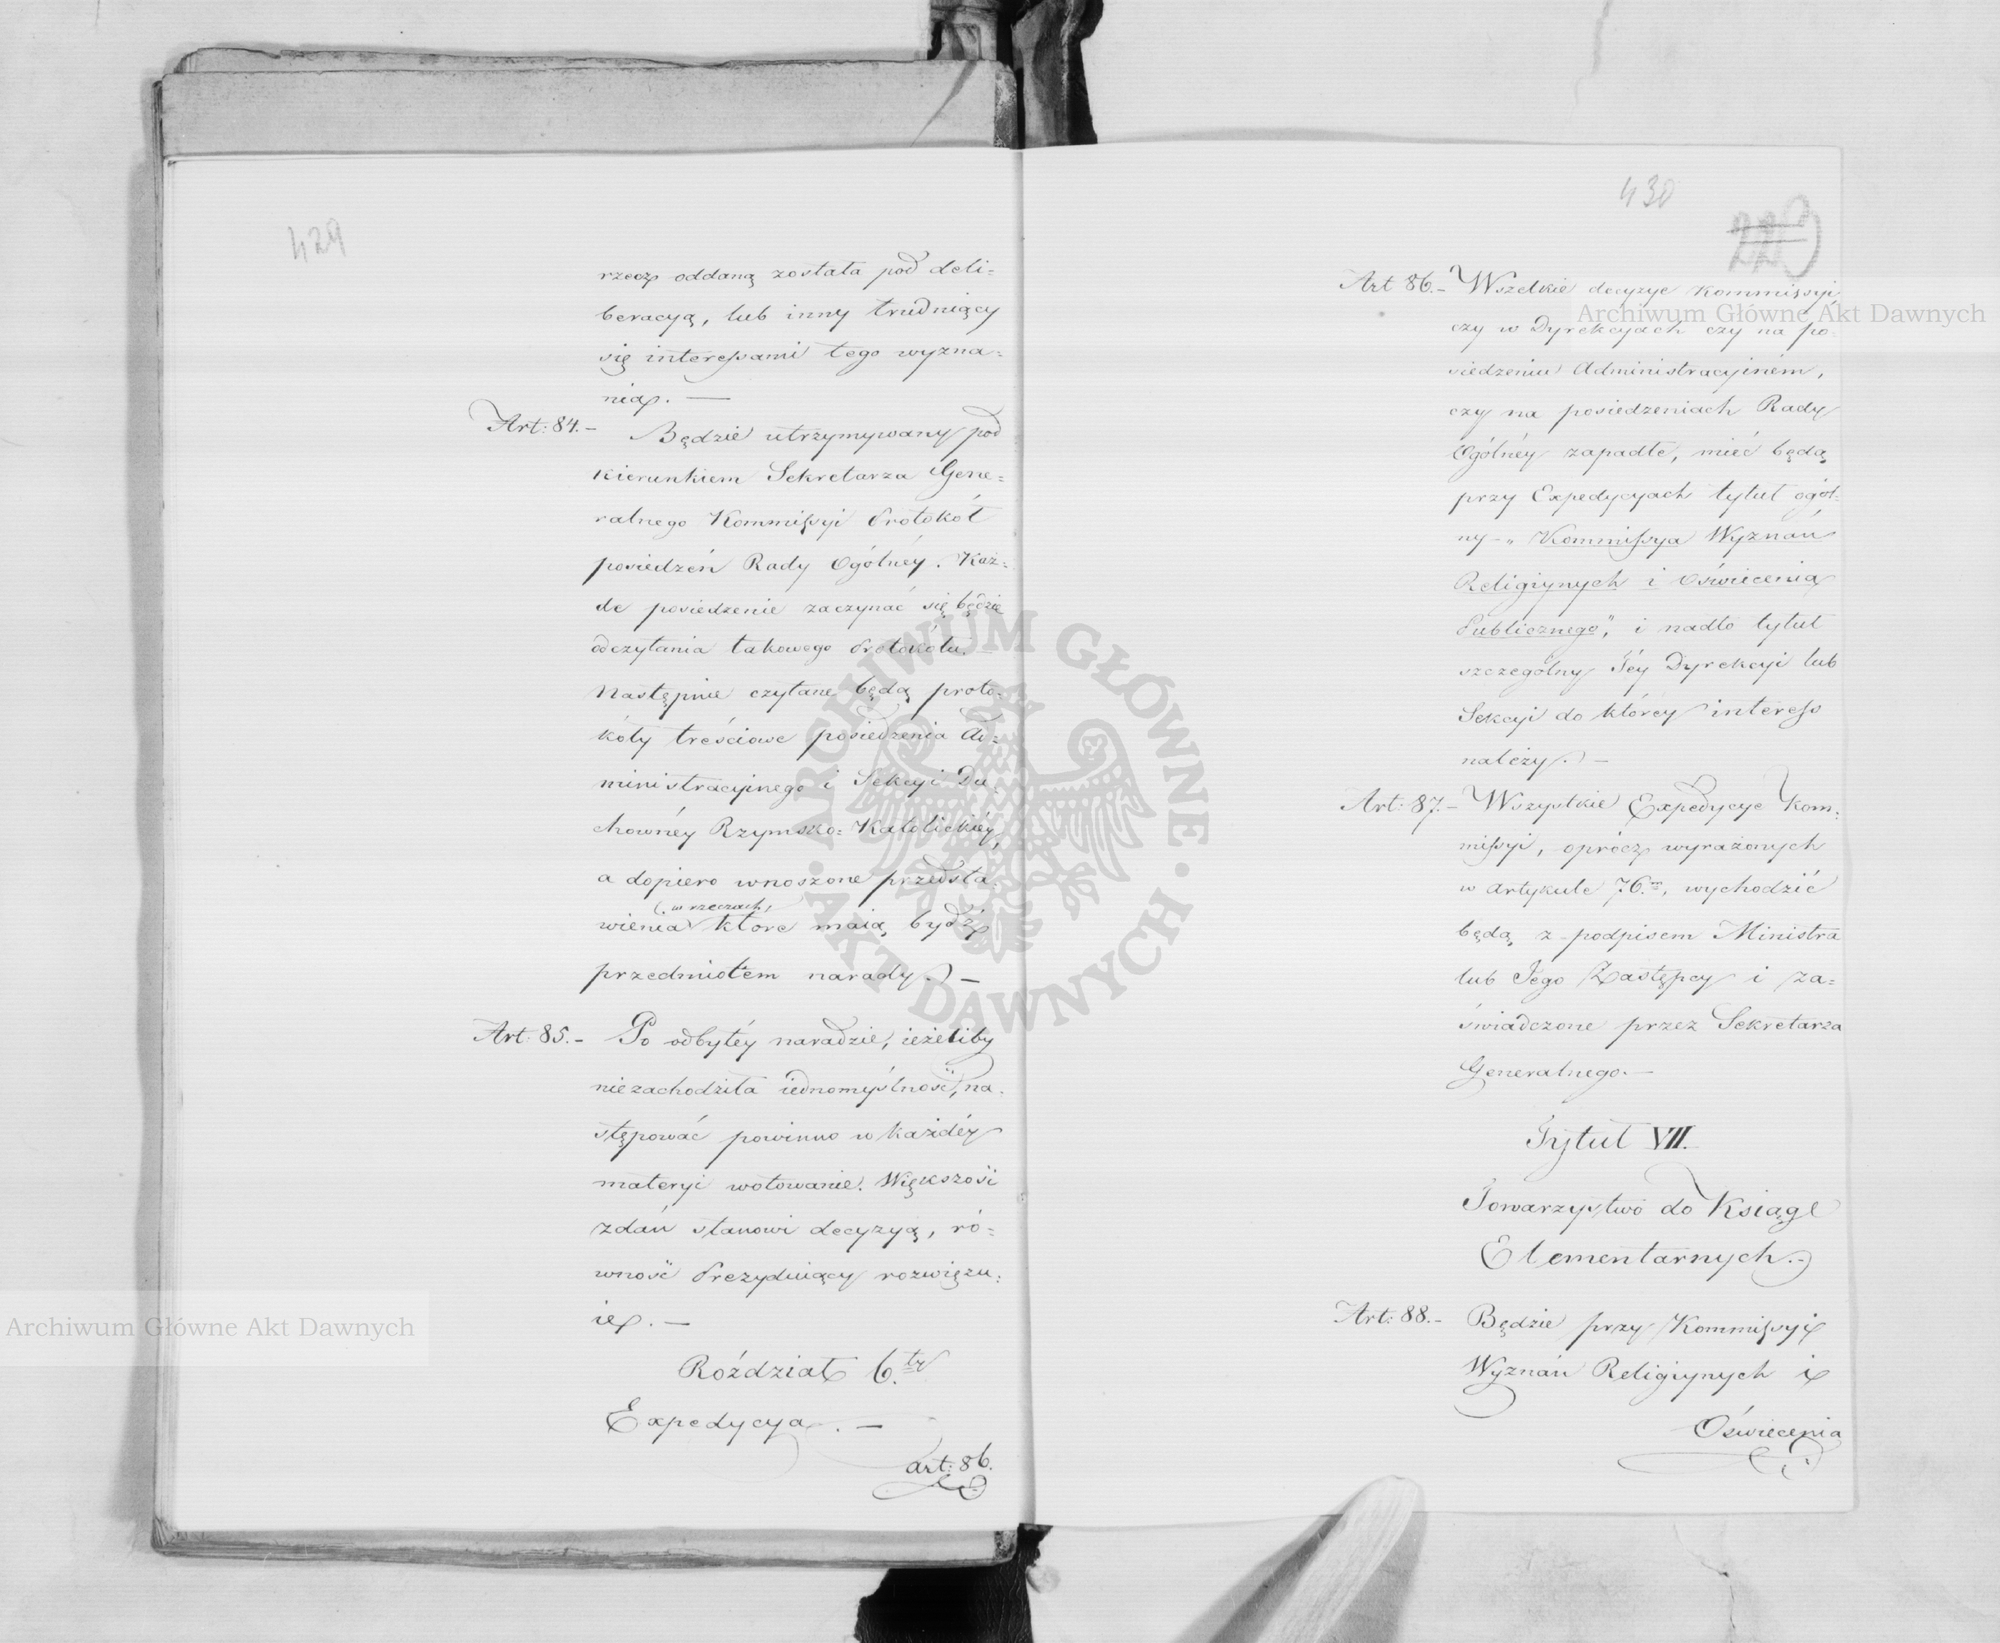 429
rzecz oddaną została pod deli=
beracyą, lub inny trudniący
się interessami tego wyzna=
nia. —
Art: 84. – Będzie utrzymywany pod
kierunkiem Sekretarza Gene=
ralnego Kommissyi Protokół
posiedzeń Rady Ogólnéy. Każ=
de posiedzenie zaczynać się będzie
odczytania takowego Protokółu. —
Następnie czytane będą proto=
kóły treściowe posiedzenia Ad=
ministracyinego i Sekcyi Du=
chownéy Rzymsko=Katolickiéy,
a dopiero wnoszone przedsta=
w rzeczach,
wienia które maią bydź
przedmiotem narady. —
Art: 85. – Po odbytéy naradzie, ieżeliby
niezachodziła iednomyślność, na=
stępować powinno w każdéy
materyi wotowanie. Większość
zdań stanowi decyzyą, ró=
wność Prezyduiący rozwiązu=
ie. —
Roździał 6.ty
Expedycya. —
art: 86.
430
Art 86. – Wszelkie decyzye Kommissyi
czy w Dyrekcyach czy na po=
siedzeniu Administracyiném,
czy na posiedzeniach Rady
Ogólnéy zapadłe, mieć będą
przy Expedycyach tytuł ogól=
ny – „Kommissya Wyznań
Religiynych i Oświecenia
Publicznego", i nadto tytuł
szczególny Téy Dyrekcyi lub
Sekcyi do któréy interess
należy. —
Art: 87. – Wszystkie Expedycye Kom=
missyi, oprócz wyrażonych
w artykule 76.m, wychodzić
będą z podpisem Ministra
lub Jego Zastępcy i za=
świadczone przez Sekretarza
Generalnego. —
Tytuł VII.
Towarzystwo do Ksiąg
Elementarnych. –
Art: 88. – Będzie przy Kommissyi
Wyznań Religiynych i
Oświecenia
Archiwum Główne Akt Dawnych
Archiwum Główne Akt Dawnych
ARCHIWUM GŁÓWNE · AKT DAWNYCH ·